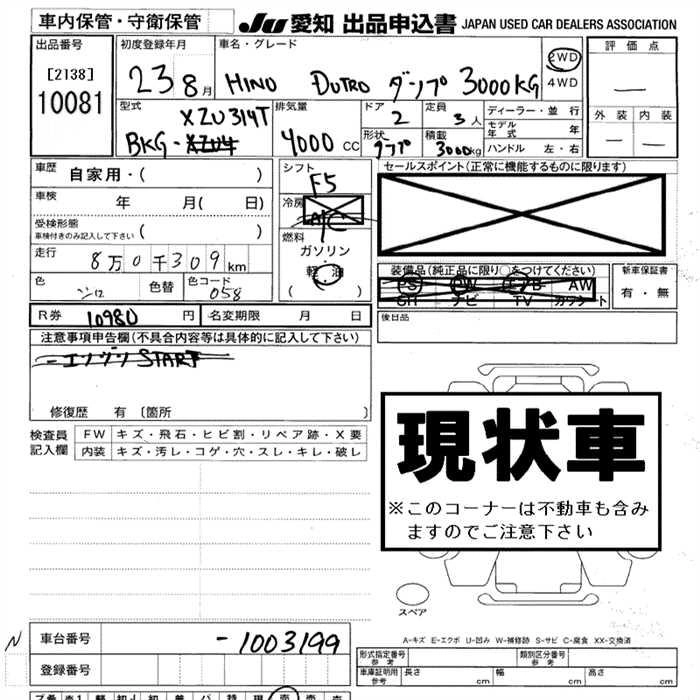 車内保管・守衛保管
JU 愛知 出品申込書 JAPAN USED CAR DEALERS ASSOCIATION
出品番号
[2138]
10081
初度登録年月
23 8月
車名・グレード
HINO DUTRO ダンプ 3000KG
2WD
4WD
評価点
―
外装 内装
― ―
型式
XZU314T
BKG-
排気量
4000 CC
ドア
2
定員
3人
形状
積載
3000kg
ディーラー・並行
モデル年式 年
ハンドル 左・右
車歴
自家用・( )
車検
年 月( 日)
受検形態
車検付きのみ記入して下さい ( )
走行
8万0千309km
色
シロ
色替
色コード
058
シフト
F5
冷房
A/C
燃料
ガソリン
軽油
( )
セールスポイント(正常に機能するものに限ります)
装備品(純正品に限り○をつけてください)
PS PW エアB AW
SH ナビ TV カワシート
新車保証書
有・無
R券 10980 円 名変期限 月 日
後日品
注意事項申告欄(不具合内容等は具体的に記入して下さい)
エンジン START
修復歴 有 [箇所 ]
検査員
記入欄
FW キズ・飛石・ヒビ割・リペア跡・X要
内装 キズ・汚レ・コゲ・穴・スレ・キレ・破レ
現状車
※このコーナーは不動車も含み
ますのでご注意下さい
スペア
A-キズ E-エクボ U-凹み W-補修跡 S-サビ C-腐食 XX-交換済
N
車台番号
-1003199
登録番号
形式指定番号
参考
類別区分番号
参考
車庫証明用
参考
長さ cm 幅 cm 高さ cm